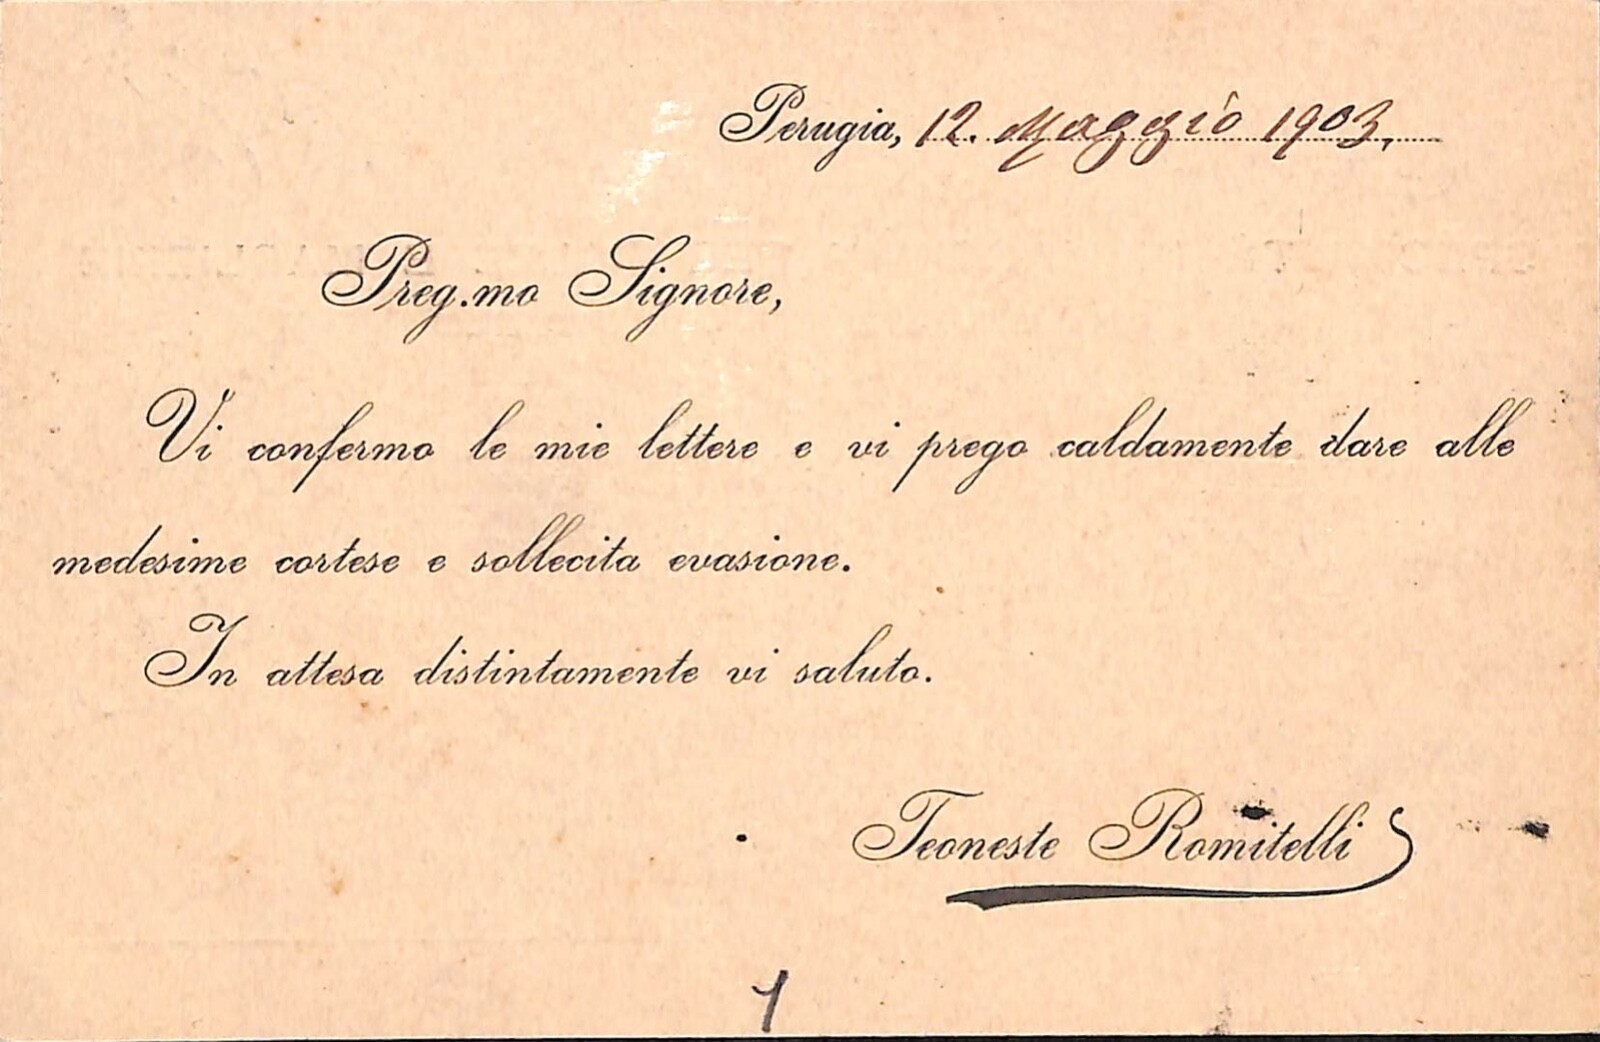 Perugia, 12. Maggio 1903,
Preg.mo Signore,
Vi confermo le mie lettere e vi prego caldamente dare alle
medesime cortese e sollecita evasione.
In attesa distintamente vi saluto.
Teoneste Romitelli
1